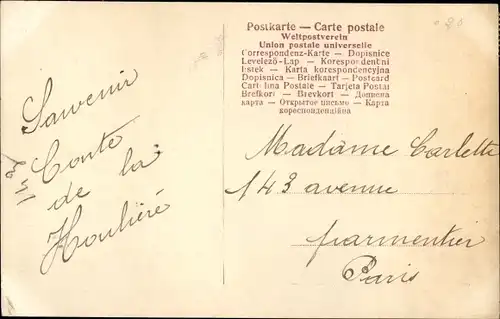 Postkarte — Carte postale
Weltpostverein
Union postale universelle
Correspondenz-Karte — Dopisnice
Levelező-Lap — Korespondentni
lístek — Karta korespondencyjna
Dopisnica — Briefkaart — Postcard
Cartolina Postale — Tarjeta Postal
Brefkort — Brevkort — Дописна
карта — Открытое письмо — Карта
кореспонденційна
Souvenir
Conte
de la
Houlière
Madame Carlette
143 avenue
parmentier
Paris